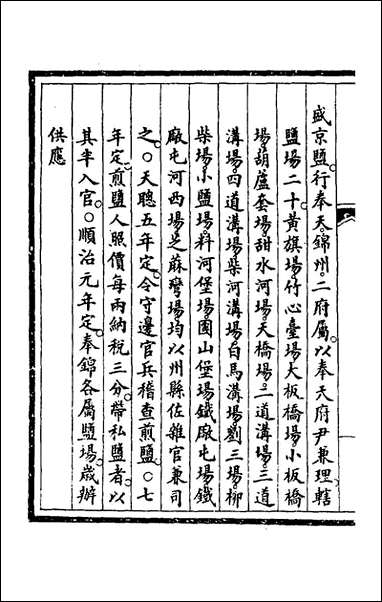 盛京鹽。行奉天。錦州。二府屬。以奉天府尹兼理。轄
鹽場二十。黃旗場。竹心臺場。大板橋場。小板橋
場。葫蘆套場。甜水河場。天橋場。二道溝場。三道
溝場。四道溝場。柴河溝場。白馬溝場。劉三場。柳
柴場。小鹽場。料河堡場。團山堡場。鐵廠屯場。鐵
廠屯河西場。芝蔴灣場。均以州縣佐雜官兼司
之。○天聰五年定。令守邊官兵稽查煎鹽。○七
年定。煎鹽人照價每兩納稅三分。帶私鹽者。以
其半入官。○順治元年定。奉錦各屬鹽場。歲辦
供應